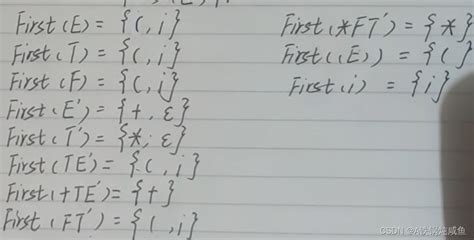 First(E) = {(, i}
First(T) = {(, i}
First(F) = {(, i}
First(E') = {+, ε}
First(T') = {*, ε}
First(TE') = {(, i}
First(+TE') = {+}
First(FT') = {(, i}
First(*FT') = {*}
First((E)) = {(}
First(i) = {i}